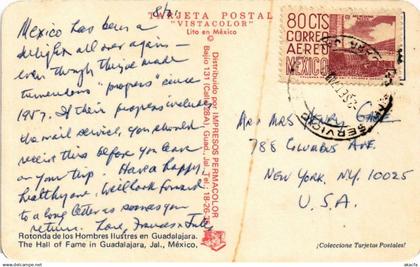 8/21
TARJETA POSTAL
"VISTACOLOR"
Lito en México
Mexico has been a
delight all over again –
even though they've made
tremendous "progress" since
1957. If their progress includes
the mail service, you should
receive this before you leave
on your trip. Have a happy,
healthy one. We'll look forward
to a long letter as soon as you
return. Love, Frances + Jule
Rotonda de los Hombres Ilustres en Guadalajara.
The Hall of Fame in Guadalajara, Jal., México.
Distribuido por IMPRESOS PERMACOLOR
Bajío 131 (Calz. 28A), Guad., Jal. Tel.: 18-26-
80 CTS
CORREO
AEREO
MEXICO
SERVICIO
Mr & Mrs
788 Columbus Ave.
New York, N.Y. 10025
U.S.A.
¡Coleccione Tarjetas Postales!